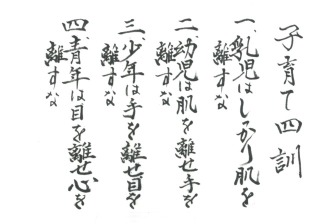 子育て四訓
一、乳児はしっかり肌を
離すな
二、幼児は肌を離せ手を
離すな
三、少年は手を離せ目を
離すな
四、青年は目を離せ心を
離すな